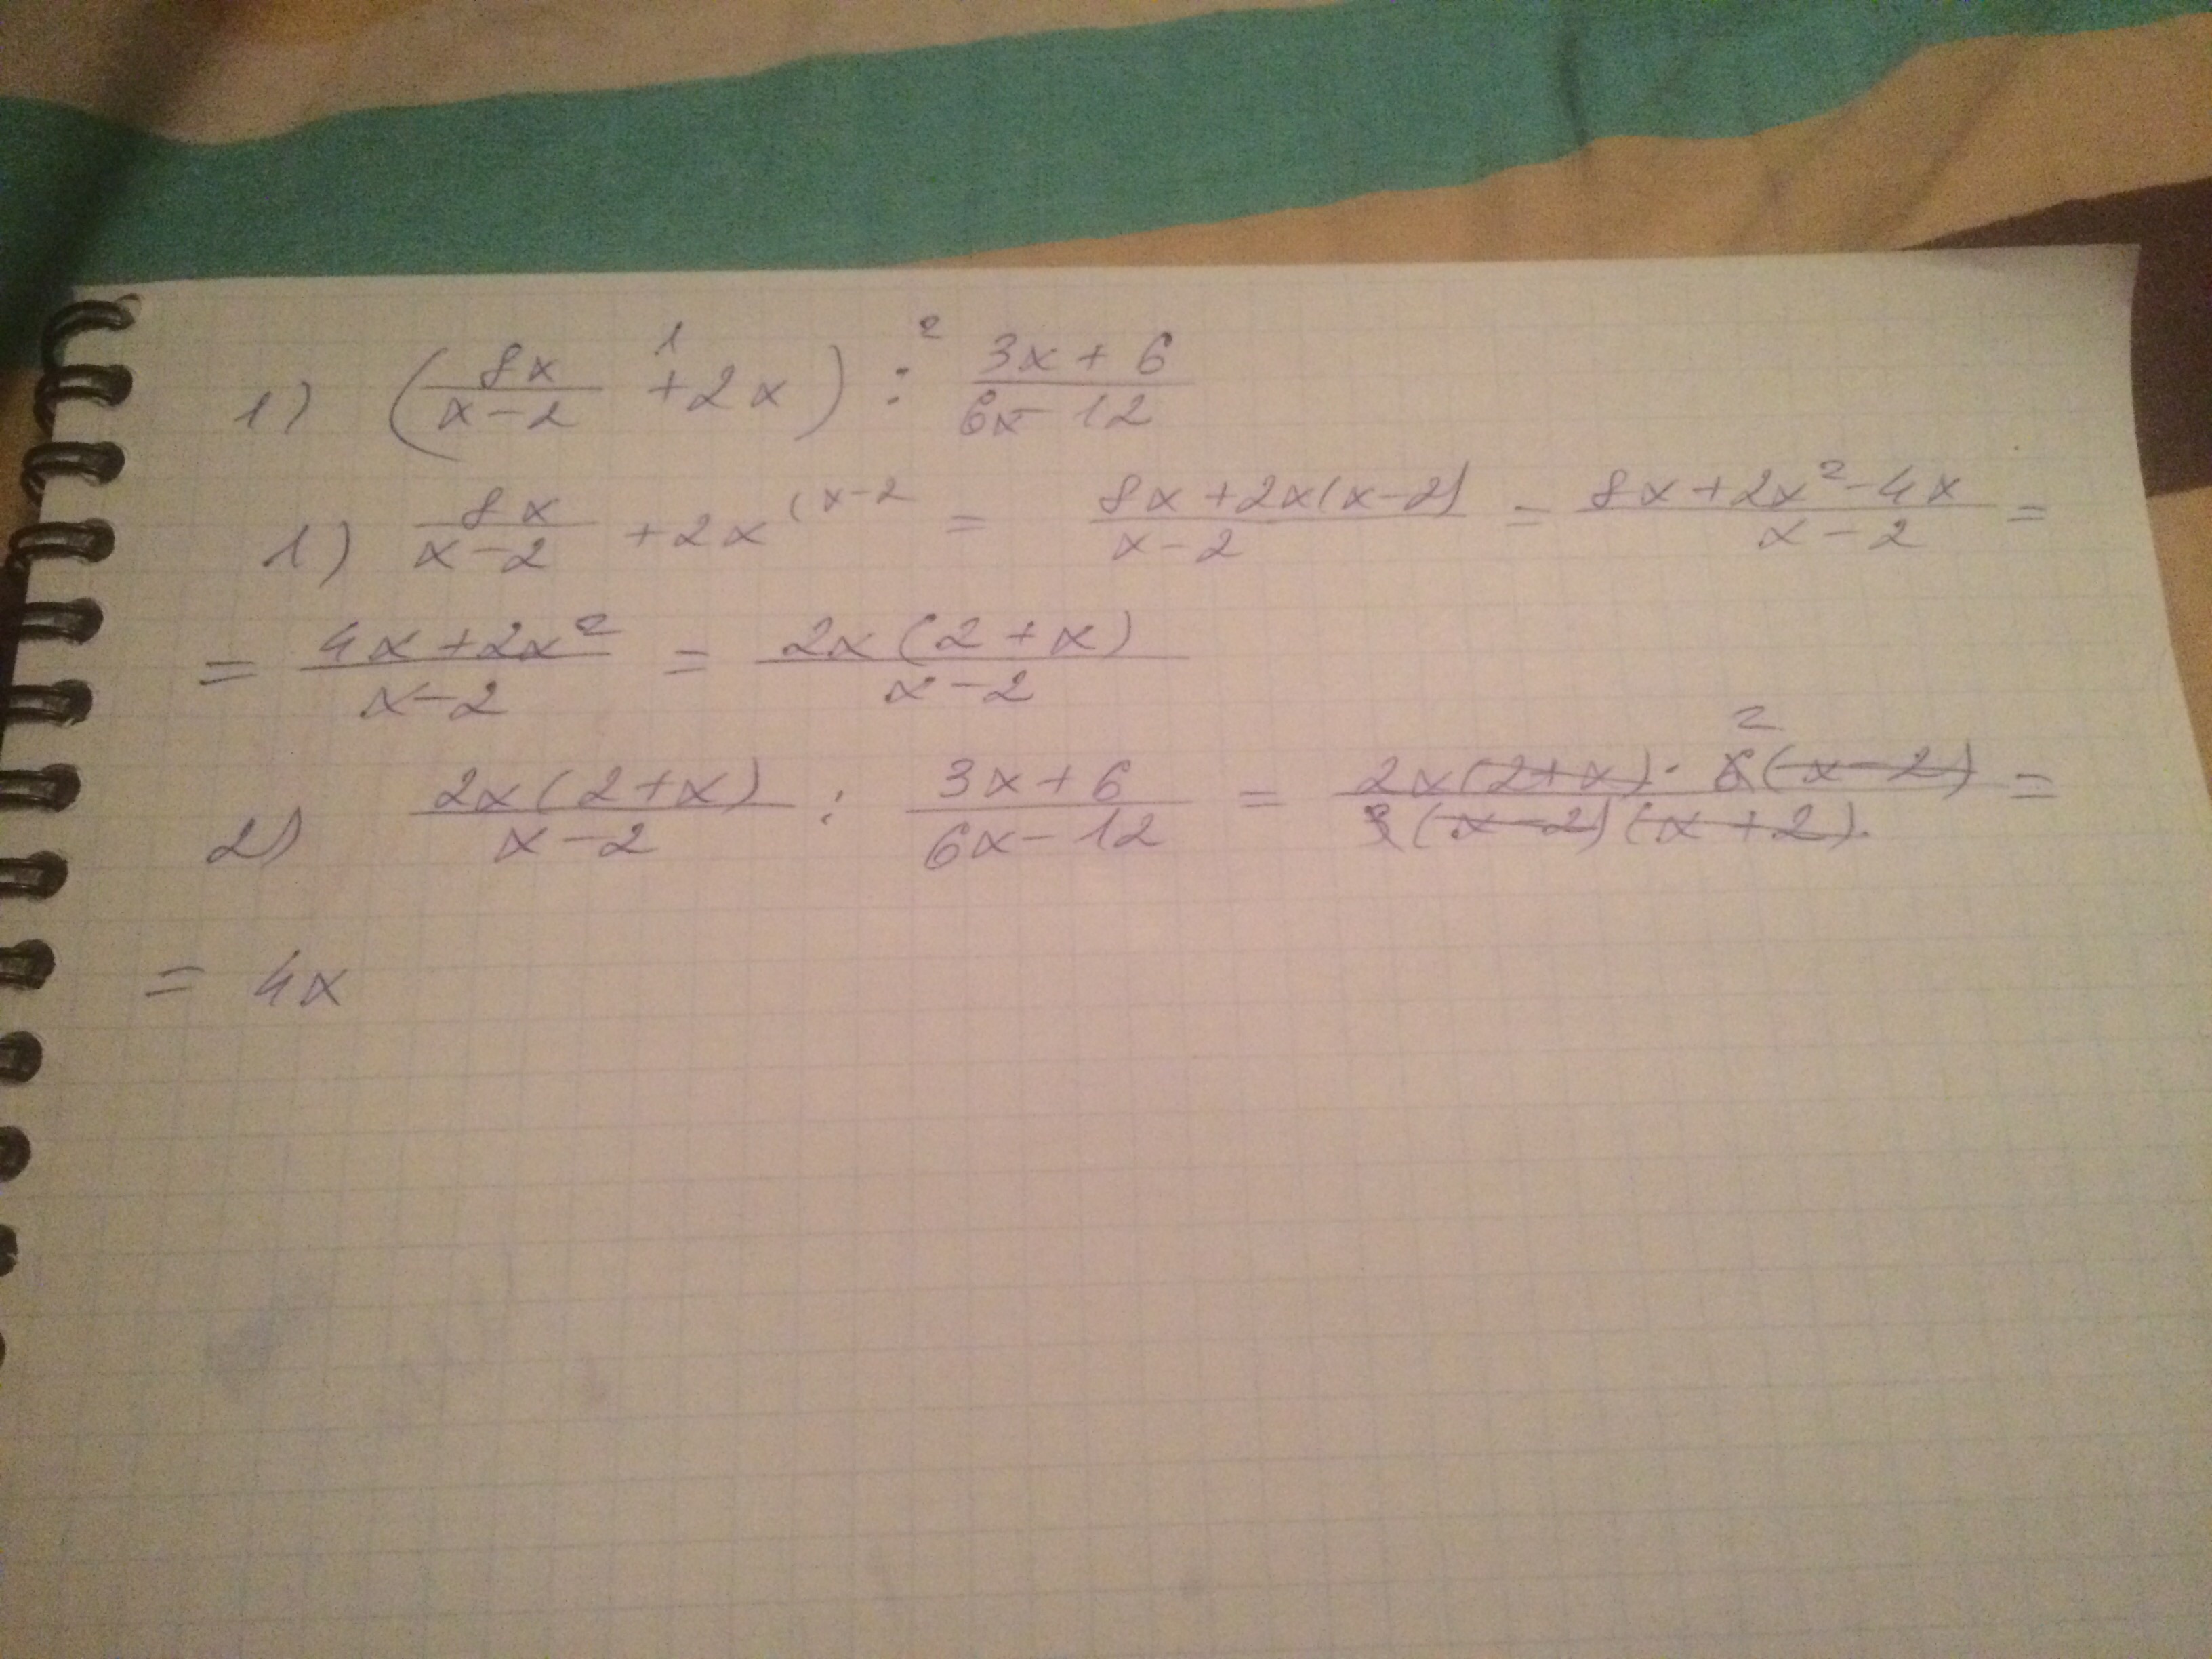 1) (8x/(x-2) +¹ 2x) :² (3x+6)/(6x-12)
1) 8x/(x-2) + 2x^(x-2 = (8x+2x(x-2))/(x-2) = (8x+2x²-4x)/(x-2) =
= (4x+2x²)/(x-2) = (2x(2+x))/(x-2)
2) (2x(2+x))/(x-2) : (3x+6)/(6x-12) = (2x(2+x)·6²(x-2))/(3(x-2)(x+2)) =
= 4x